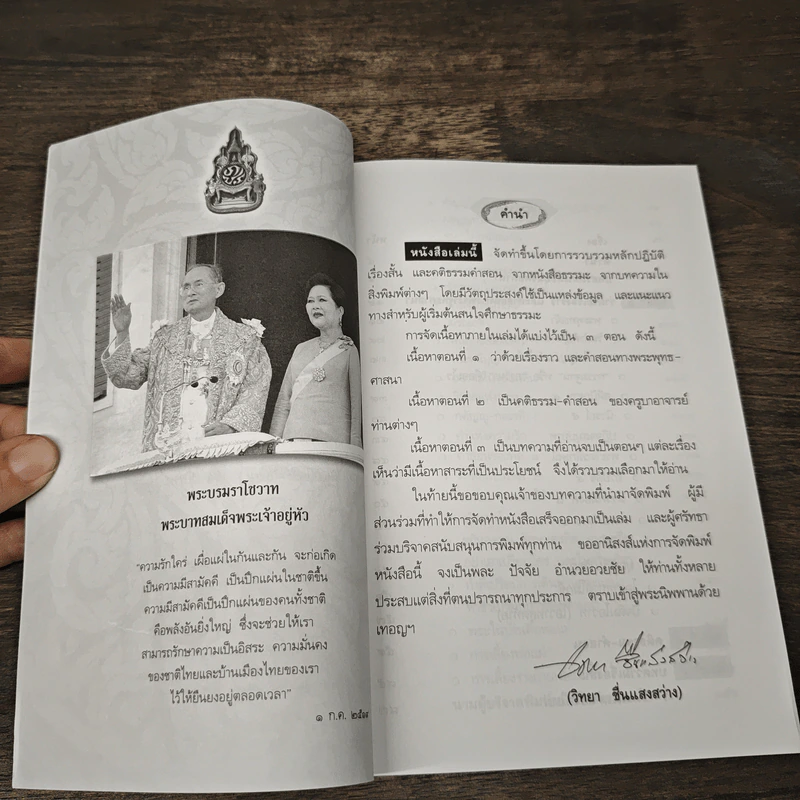 พระบรมราโชวาท
พระบาทสมเด็จพระเจ้าอยู่หัว
"ความรักใคร่ เผื่อแผ่ในกันและกัน จะก่อเกิด
เป็นความมีสามัคคี เป็นปึกแผ่นในชาติขึ้น
ความมีสามัคคีเป็นปึกแผ่นของคนทั้งชาติ
คือพลังอันยิ่งใหญ่ ซึ่งจะช่วยให้เรา
สามารถรักษาความเป็นอิสระ ความมั่นคง
ของชาติไทยและบ้านเมืองไทยของเรา
ไว้ให้ยืนยงอยู่ตลอดเวลา"
๑ ก.ค.
คำนำ
หนังสือเล่มนี้ จัดทำขึ้นโดยการรวบรวมหลักปฏิบัติ
เรื่องสั้น และคติธรรมคำสอน จากหนังสือธรรมะ จากบทความใน
สิ่งพิมพ์ต่างๆ โดยมีวัตถุประสงค์ใช้เป็นแหล่งข้อมูล และแนะแนว
ทางสำหรับผู้เริ่มต้นสนใจศึกษาธรรมะ
การจัดเนื้อหาภายในเล่มได้แบ่งไว้เป็น ๓ ตอน ดังนี้
เนื้อหาตอนที่ ๑ ว่าด้วยเรื่องราว และคำสอนทางพระพุทธ-
ศาสนา
เนื้อหาตอนที่ ๒ เป็นคติธรรม-คำสอน ของครูบาอาจารย์
ท่านต่างๆ
เนื้อหาตอนที่ ๓ เป็นบทความที่อ่านจบเป็นตอนๆ แต่ละเรื่อง
เห็นว่ามีเนื้อหาสาระที่เป็นประโยชน์ จึงได้รวบรวมเลือกมาให้อ่าน
ในท้ายนี้ขอขอบคุณเจ้าของบทความที่นำมาจัดพิมพ์ ผู้มี
ส่วนร่วมที่ทำให้การจัดทำหนังสือเสร็จออกมาเป็นเล่ม และผู้ศรัทธา
ร่วมบริจาคสนับสนุนการพิมพ์ทุกท่าน ขออานิสงส์แห่งการจัดพิมพ์
หนังสือนี้ จงเป็นพละ ปัจจัย อำนวยอวยชัย ให้ท่านทั้งหลาย
ประสบแต่สิ่งที่ตนปรารถนาทุกประการ ตราบเข้าสู่พระนิพพานด้วย
เทอญฯ
(วิทยา ชื่นแสงสว่าง)